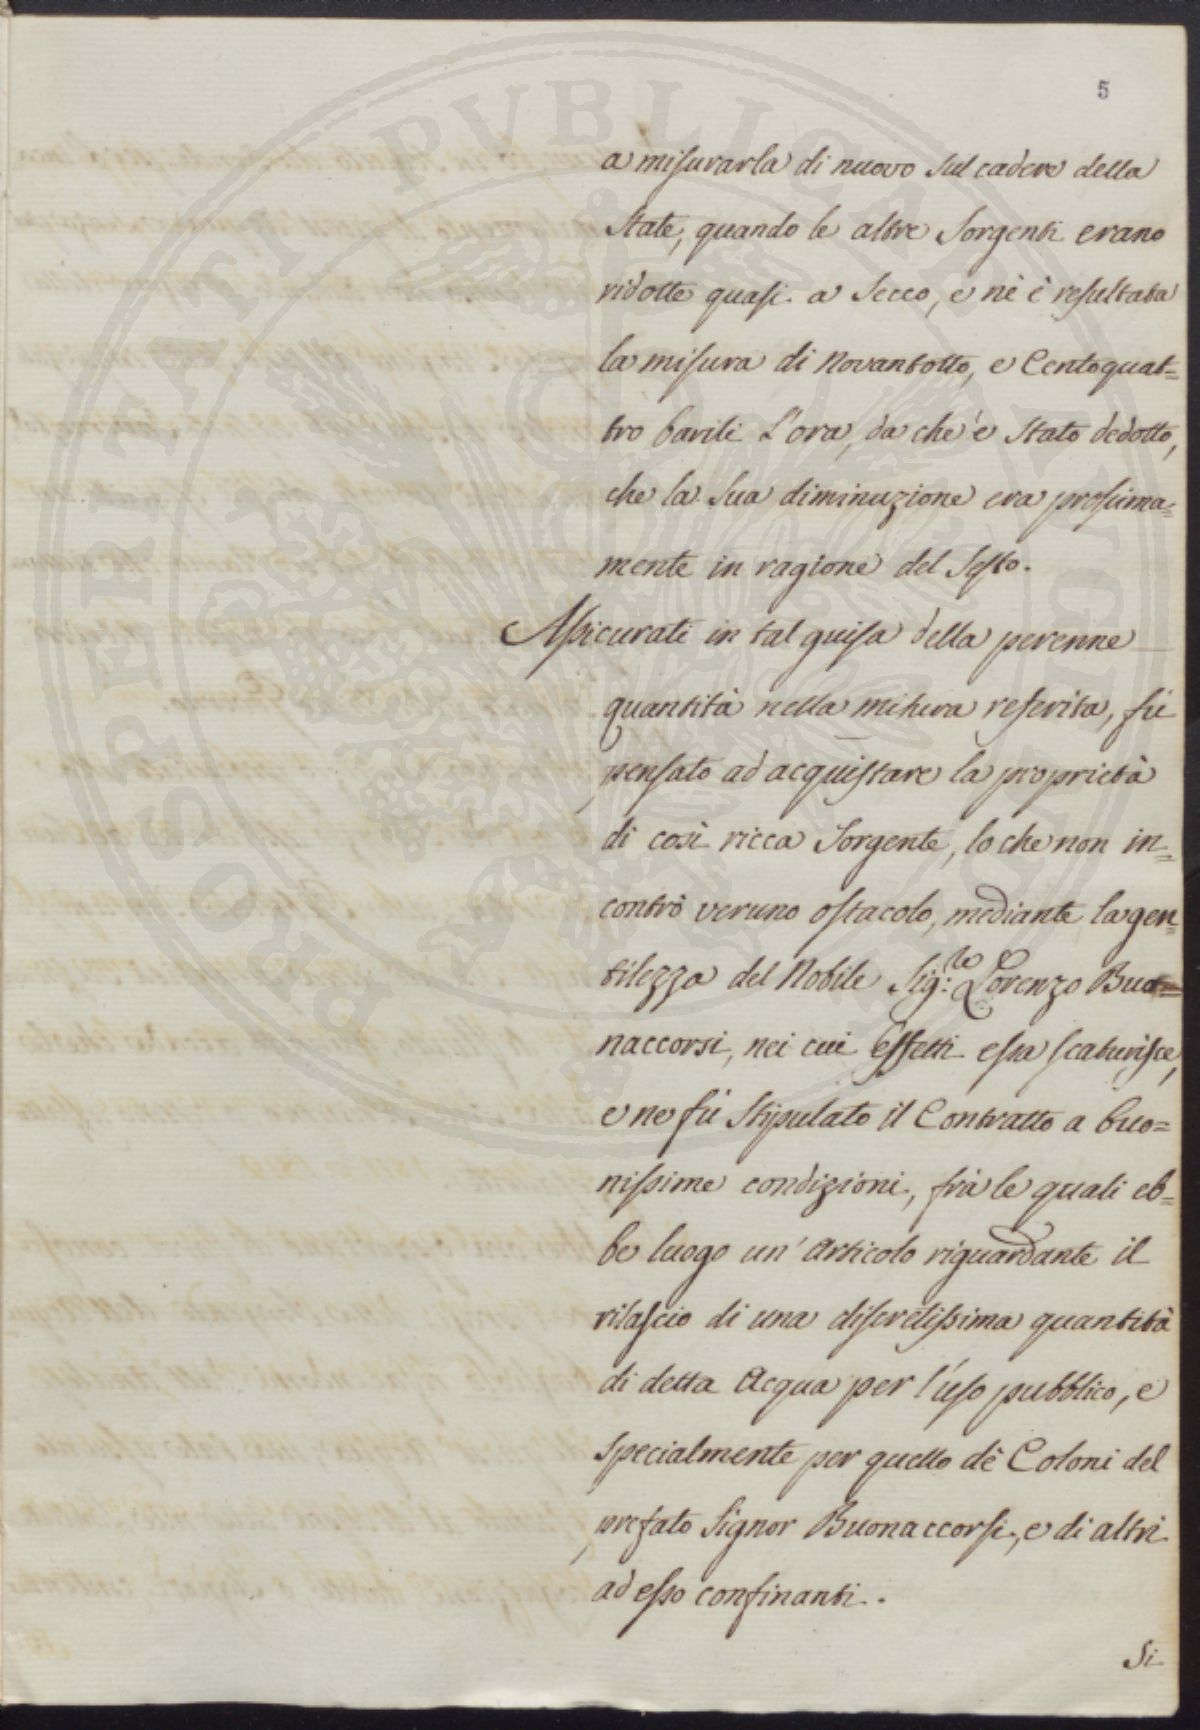 5
a misurarla di nuovo sul cadere della
State, quando le altre Sorgenti erano
ridotte quasi a Secco, e nè è resultata
la misura di Novantotto, e Centoquat=
tro barili L'ora, da che è Stato dedotto,
che la Sua diminuzione era prossima=
mente in ragione del Sesto.
Assicurati in tal guisa della perenne
quantità nella misura referita, fù
pensato ad acquistare la proprietà
di così ricca Sorgente, lo che non in=
contrò veruno ostacolo, mediante la gen=
tilezza del Nobile Sig:re Lorenzo Buo=
naccorsi, nei cui effetti essa scaturisce,
e ne fù Stipulato il Contratto a buo=
nissime condizioni, frà le quali eb=
be luogo un' Articolo riguardante il
rilascio di una discretissima quantità
di detta Acqua per l'uso pubblico, e
specialmente per quello dè Coloni del
prefato Signor Buonaccorsi, e di altri
ad esso confinanti.
Si
PROSPERITATI PUBLICAE AUGENDAE